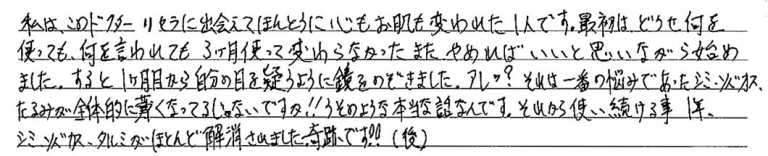 私は、このドクターリセラに出会えてほんとうに心もお肌も変われた1人です。最初は、どうせ何を
使っても、何を言われても 3ヶ月使って変わらなかったら またやめればいいと思いながら始め
ました。すると 1ヶ月目から自分の目を疑うように鏡をのぞきました。アレッ？それは一番の悩みであったシミ・ソバカス、
たるみが全体的に薄くなってるじゃないですか!!うそのような本当な話なんです。それから使い続ける事 1年、
シミ・ソバカス、タルミがほとんど解消されました。奇跡です!!（後）